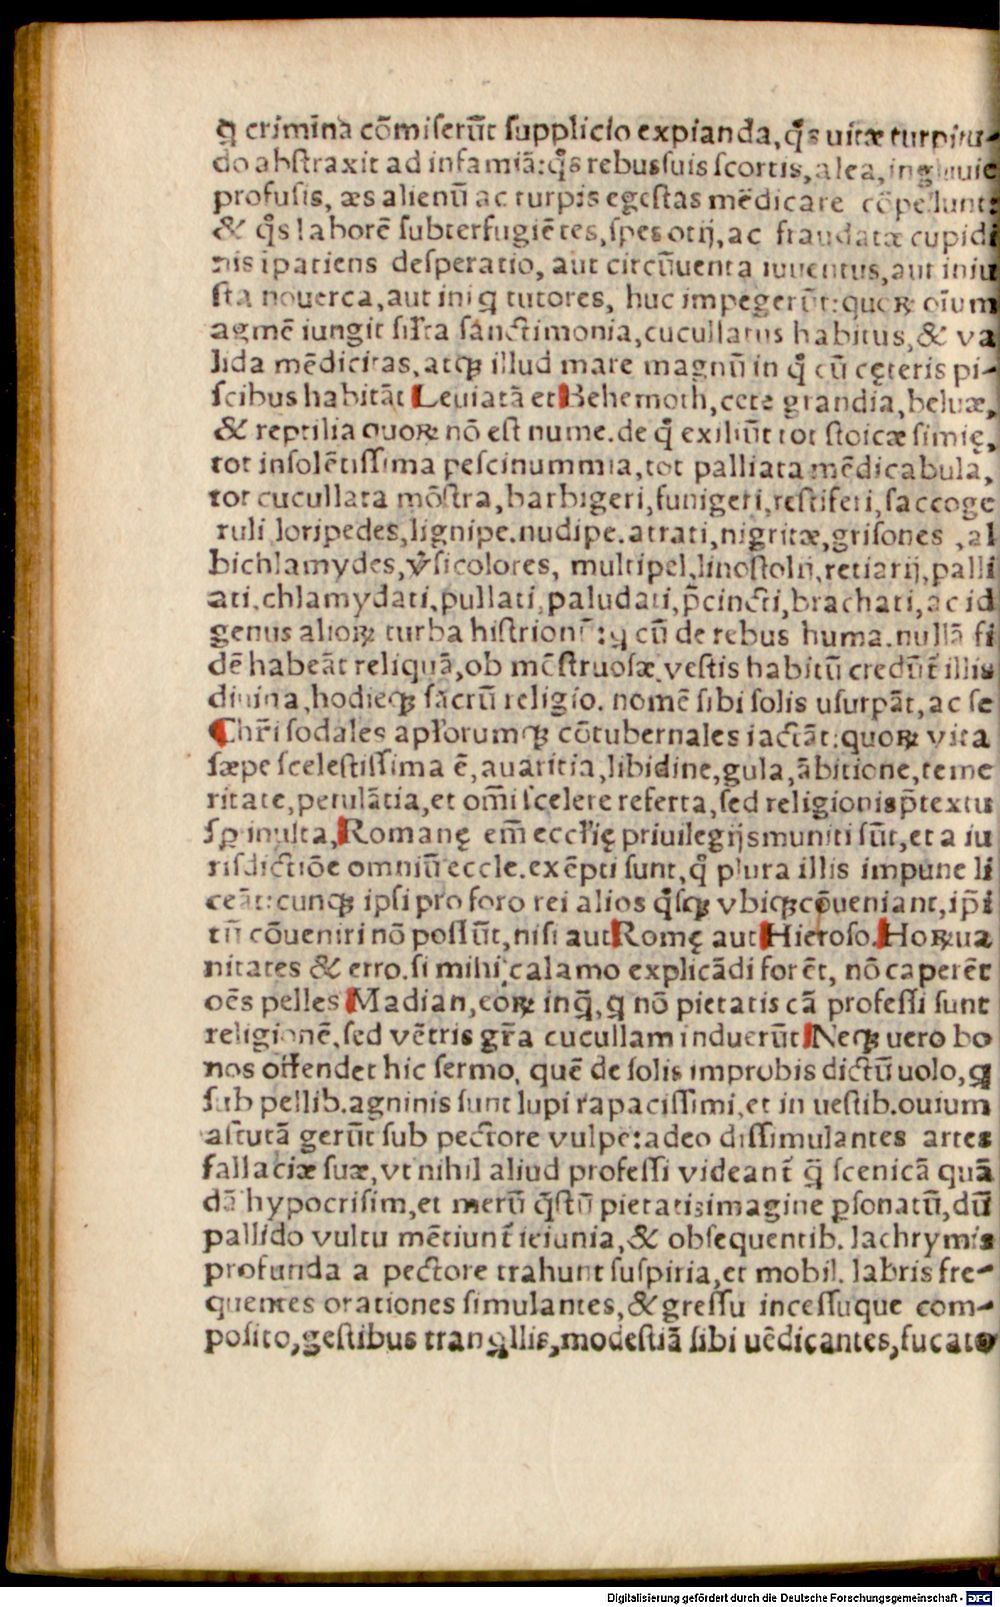 q crimina cōmiserūt supplicio expianda, qͦs uitæ turpitu-
do abstraxit ad infamiā: qͦs rebus suis scortis, alea, ingluuie
profusis, æs alienū ac turpis egestas mēdicare cōpellunt:
& qͦs laborē subterfugiētes, spes otij, ac fraudatæ cupidi
nis ipatiens desperatio, aut circūuenta iuuentus, aut iniu
sta nouerca, aut iniq tutores, huc impegerūt: quoꝝ oīum
agmē iungit sil̄ta sanctimonia, cucullatus habitus, & va
lida mēdicitas, atqꝫ illud mare magnū in qͦ cū cęteris pi-
scibus habitāt Leuiatā et Behemoth, cete grandia, beluæ,
& reptilia quoꝝ nō est nume. de qͦ exiliūt tot stoicæ simię,
tot insolētissima pescinummia, tot palliata mēdicabula,
tot cucullata mōstra, barbigeri, funigeri, restiferi, saccoge
ruli loripedes, lignipe. nudipe. atrati, nigritæ, grisones, al
bichlamydes, v̓sicolores, multipel. linostolij, retiarij, palli
ati, chlamydati, pullati, paludati, p̄cincti, brachati, ac id
genus alioꝝ turba histrionū: q cū de rebus huma. nullā fi
dē habeāt reliquā, ob mōstruosæ vestis habitū credūt̄ illis
diuina, hodieqꝫ sacrū religio. nomē sibi solis usurpāt, ac se
Chr̄i sodales apl̄orumqꝫ cōtubernales iactāt: quoꝝ vita
sæpe scelestissima ē, auaritia, libidine, gula, ābitione, teme
ritate, petulātia, et om̄i scelere referta, sed religionis p̄textu
sꝑ inulta, Romanę em̄ eccl̄ię priuilegijs muniti sūt, et a iu
risdictiōe omniū eccle. exēpti sunt, qͦ plura illis impune li
ceāt: cunqꝫ ipsi pro foro rei alios qͦsqꝫ vbiqꝫ cōueniant, ip̄i
tn̄ cōueniri nō possūt, nisi aut Romę aut Hieroso. Hoꝝ ua
nitates & erro. si mihi calamo explicādi forēt, nō caperēt
oēs pelles Madian, eoꝝ inq̄, q nō pietatis cā professi sunt
religionē, sed vētris gr̄a cucullam induerūt Neqꝫ uero bo
nos offendet hic sermo, quē de solis improbis dictū uolo, q
sub pellib. agninis sunt lupi rapacissimi, et in uestib. ouium
astutā gerūt sub pectore vulpē: adeo dissimulantes artes
fallaciæ suæ, vt nihil aliud professi videant̄ q̄ scenicā quā
dā hypocrisim, et merū q̄stū pietatis imagine ꝑsonatū, dū
pallido vultu mētiunt̄ ieiunia, & obsequentib. lachrymis
profunda a pectore trahunt suspiria, et mobil. labris fre-
quentes orationes simulantes, & gressu incessuque com-
posito, gestibus tranqllis, modestiā sibi uēdicantes, fucato
Digitalisierung gefördert durch die Deutsche Forschungsgemeinschaft - DFG